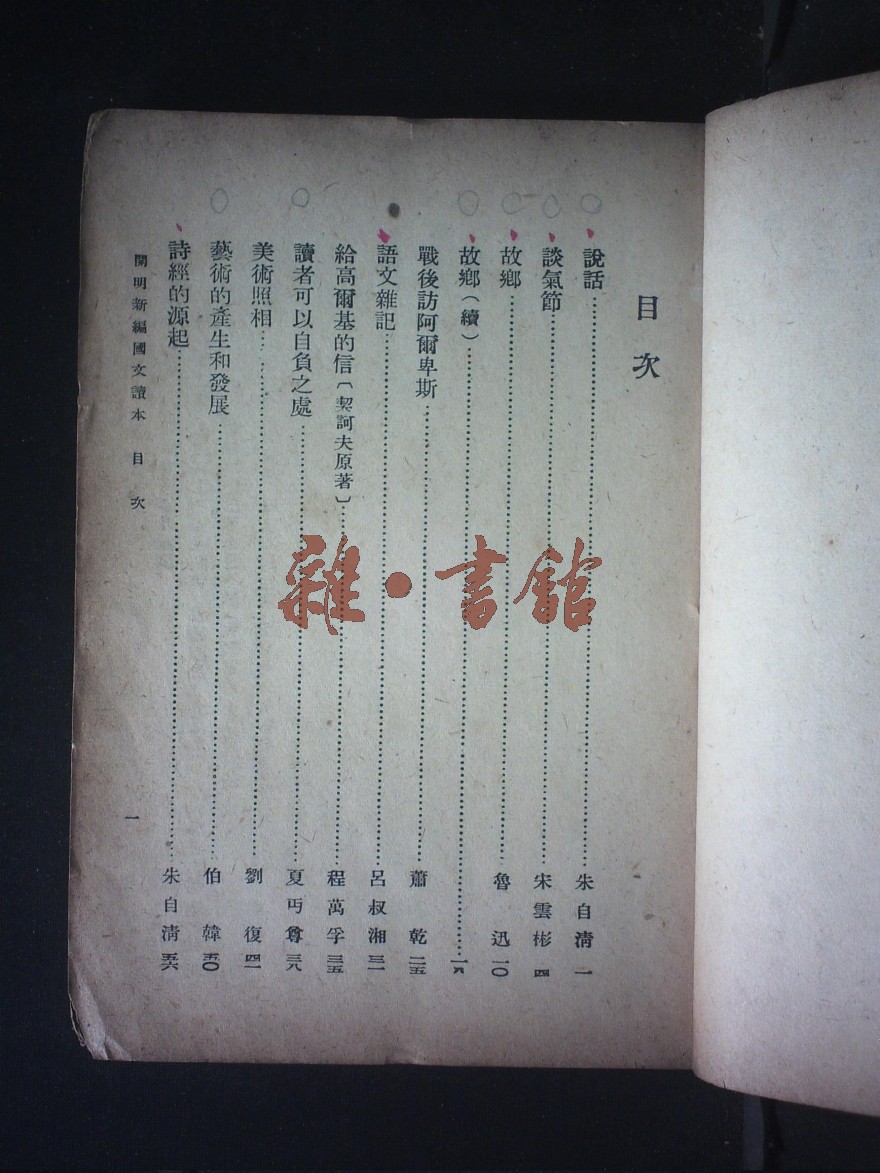 目次
說話……朱自清 一
談氣節……宋雲彬 四
故鄉……魯迅 一〇
故鄉(續)……一八
戰後訪阿爾卑斯……蕭乾 二五
語文雜記……呂叔湘 三一
給高爾基的信〔契訶夫原著〕……程萬孚 三五
讀者可以自負之處……夏丏尊 三八
美術照相……劉復 四一
藝術的產生和發展……伯韓 五〇
詩經的源起……朱自清 五六
開明新編國文讀本 目次
一
雜·書館